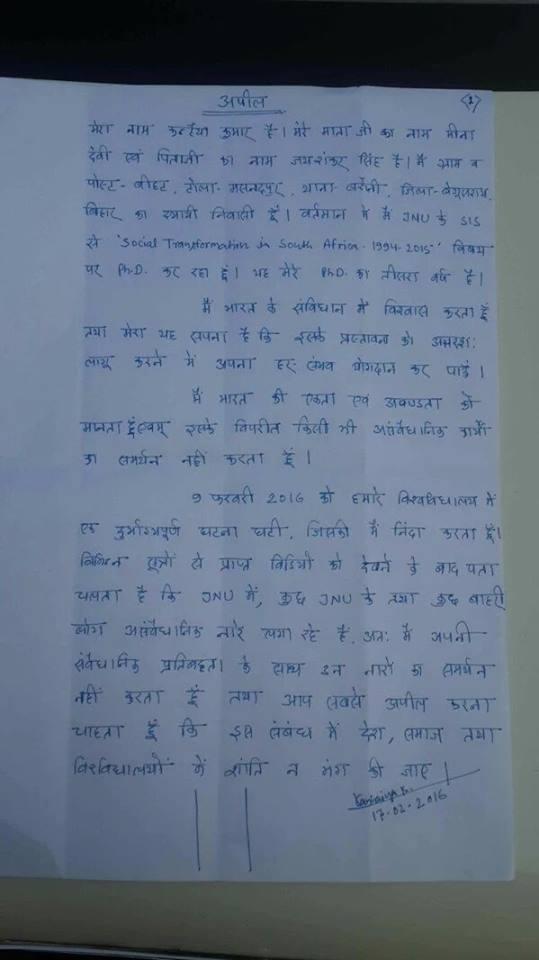 अपील
①
मेरा नाम कन्हैया कुमार है। मेरे माता जी का नाम मीना
देवी एवं पिताजी का नाम जयशंकर सिंह है। मैं ग्राम व
पोस्ट- बीहट, टोला- मसनदपुर, थाना- बरौनी, जिला- बेगूसराय,
बिहार का स्थायी निवासी हूँ। वर्तमान में मैं JNU के SIS
से 'Social Transformation in South Africa - 1994-2015' विषय
पर Ph.D. कर रहा हूं। यह मेरे Ph.D. का तीसरा वर्ष है।
मैं भारत के संविधान में विश्वास करता हूँ
तथा मेरा यह सपना है कि इसके प्रस्तावना को अक्षरश:
लागू करने में अपना हर संभव योगदान कर पाऊं।
मैं भारत की एकता एवं अखण्डता को
मानता हूँ एवम् इसके विपरीत किसी भी असंवैधानिक कार्यों
का समर्थन नहीं करता हूँ।
9 फरवरी 2016 को हमारे विश्वविद्यालय में
एक दुर्भाग्यपूर्ण घटना घटी, जिसकी मैं निंदा करता हूँ।
विभिन्न सूत्रों से प्राप्त विडियो को देखने के बाद पता
चलता है कि JNU में, कुछ JNU के तथा कुछ बाहरी
लोग असंवैधानिक नारे लगा रहे हैं. अत: मैं अपनी
संवैधानिक प्रतिबद्धता के साथ इन नारों का समर्थन
नहीं करता हूँ तथा आप सबसे अपील करना
चाहता हूँ कि इस संबंध में देश, समाज तथा
विश्वविद्यालयों में शांति न भंग की जाए।
Kanhaiya K.
17-02-2016